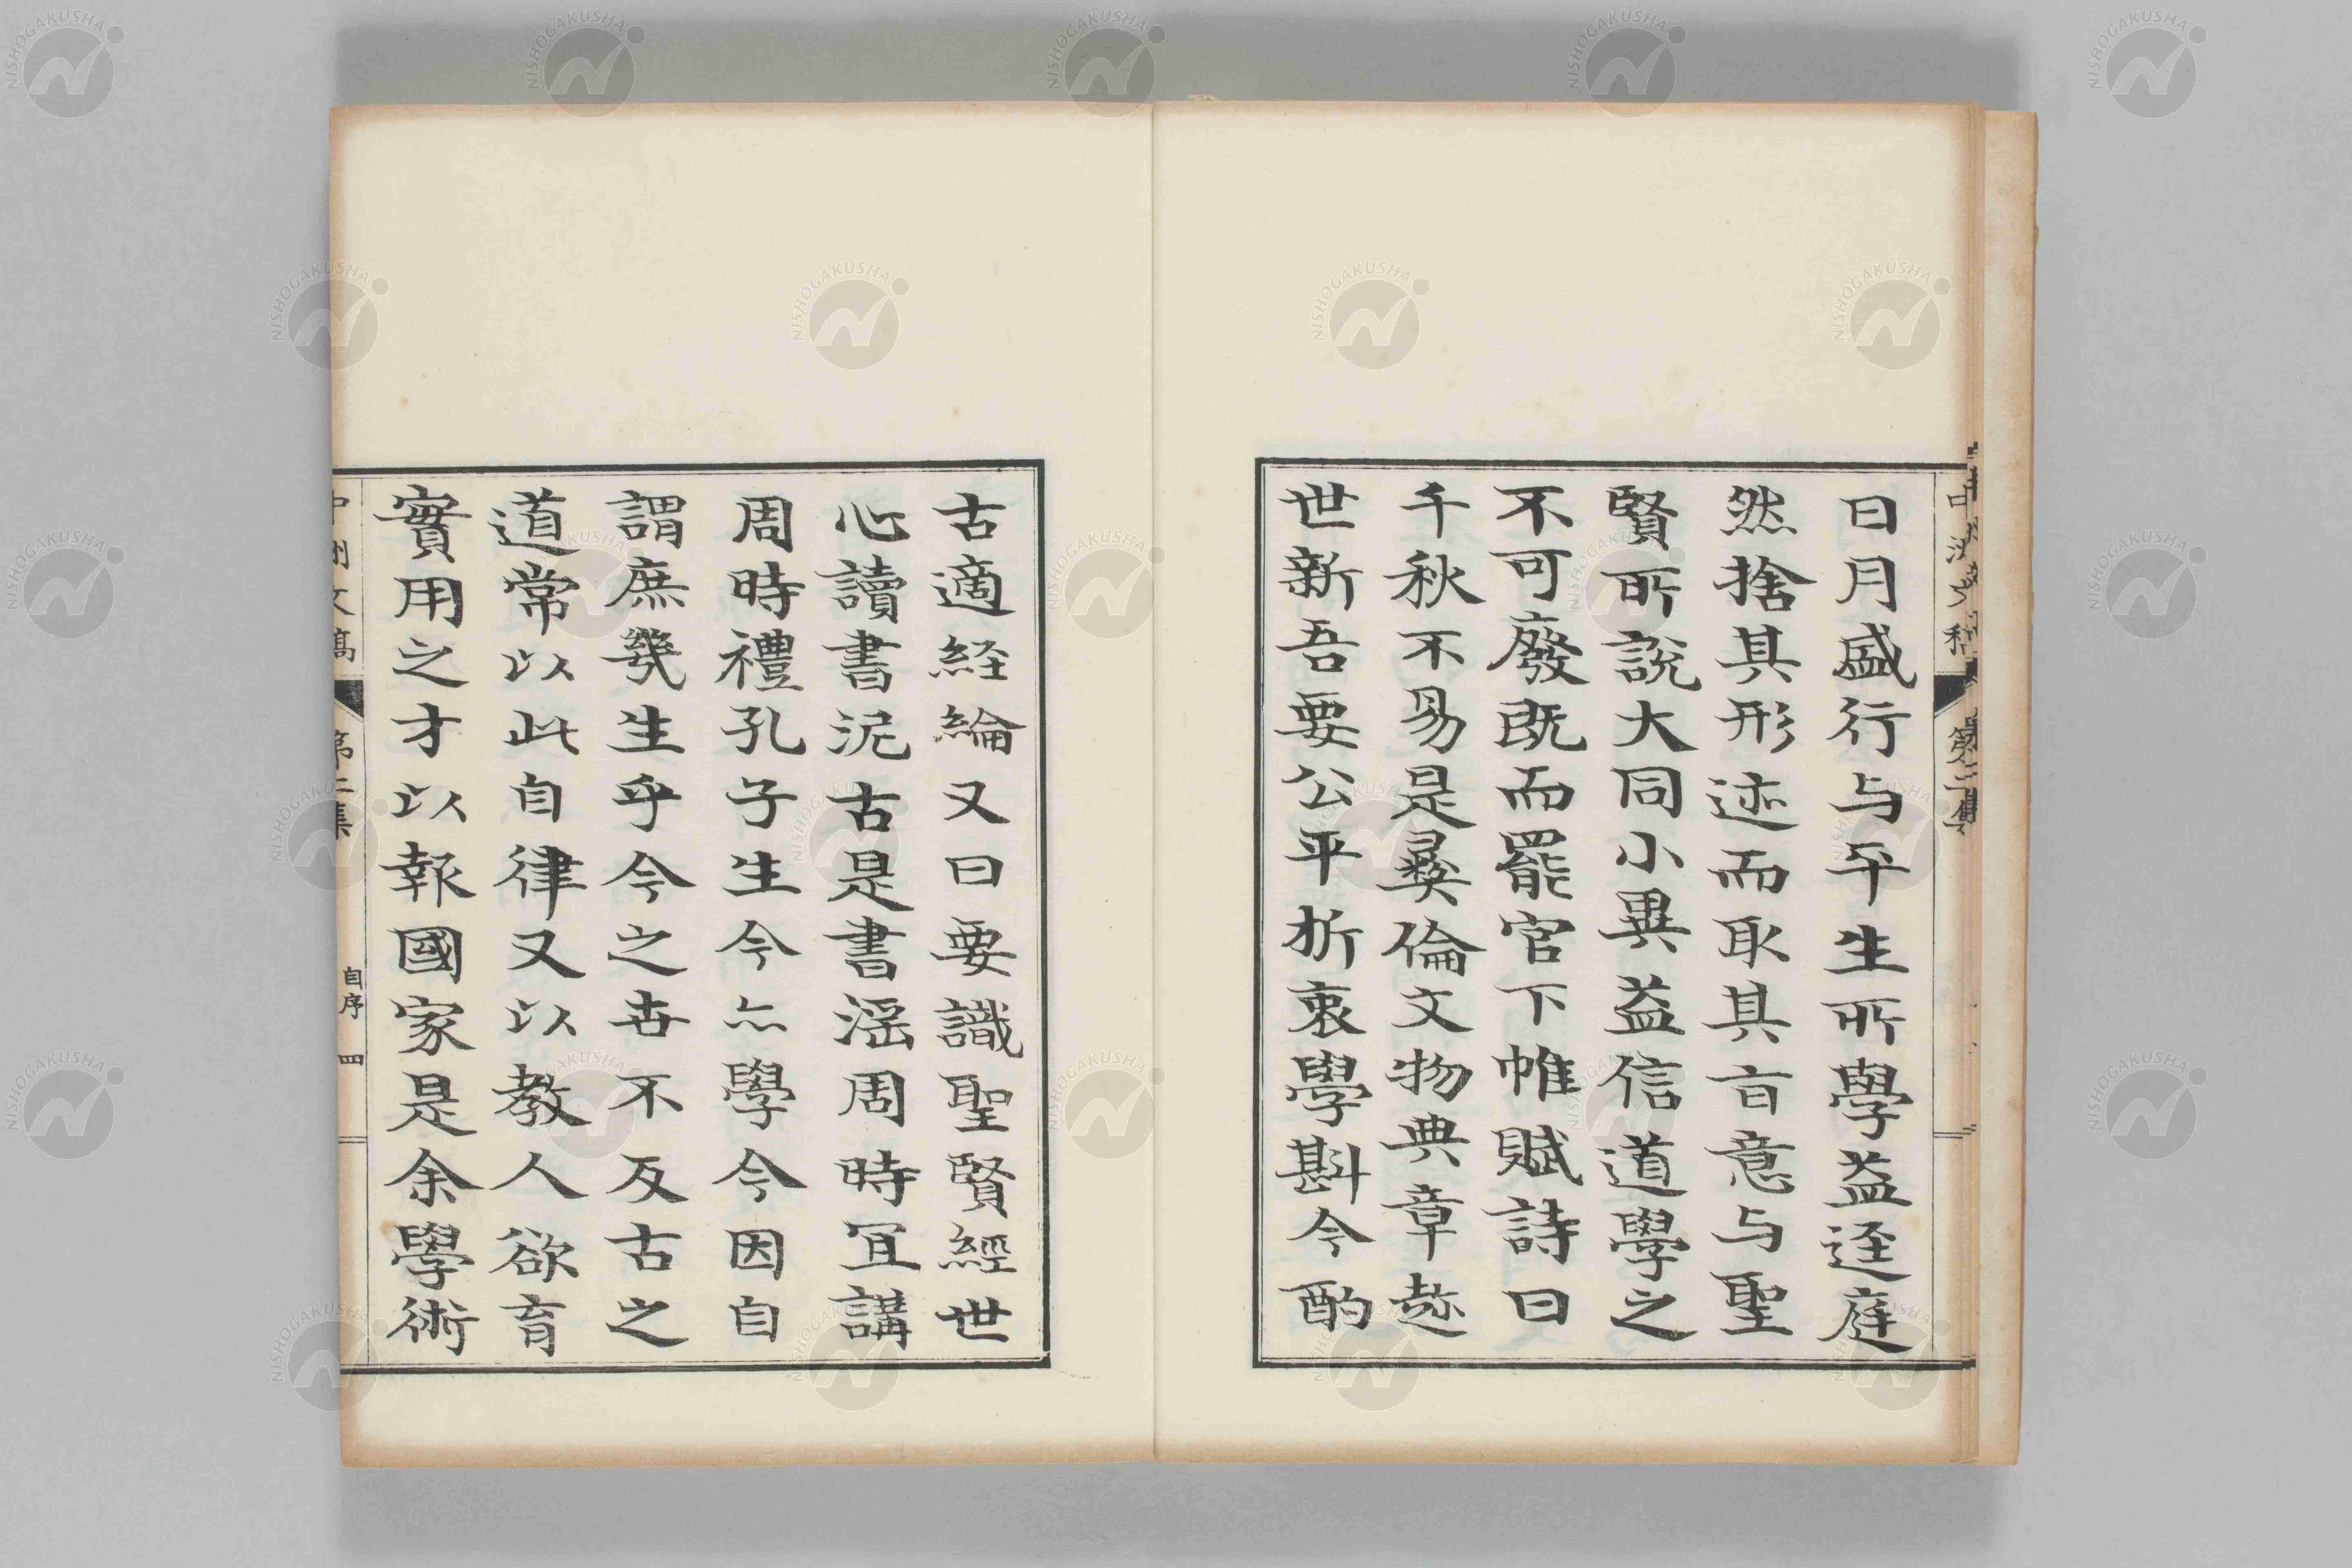 日月盛行与平生所學益逕庭
然捨其形迹而取其旨意与聖
賢所說大同小異益信道學之
不可廢既而罷官下帷賦詩曰
千秋不易是彝倫文物典章趂
世新吾要公平折衷學斟今酌
古適経綸又曰要識聖賢經世
心讀書泥古是書淫周時冝講
周時禮孔子生今亦學今因自
謂庶幾生乎今之世不反古之
道常以此自律又以教人欲育
實用之才以報國家是余學術
中洲文稿 第二集 自序 四
NISHOGAKUSHA